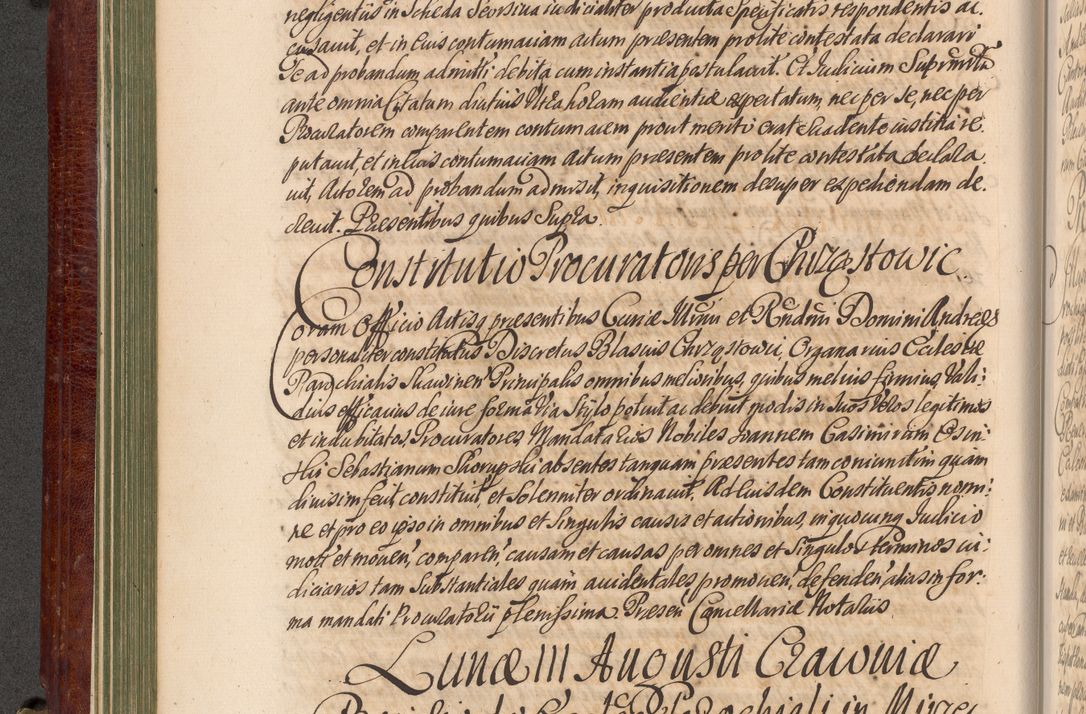 negligentiis in Scheda Seorsiva iudicialiter producta specificatis respondentis ac.
cusauit, et in eius contumaciam actum præsentem pro lite contestata declarari
Se ad probandum admitti debita cum instantia postulauit. Et Judicium Suprascriptum
ante omnia Citatum diutius Ultra horam audientiæ expectatum, nec per se, nec per
Procuratorem comparentem contumacem prout meriti erat Suadente iustitia re.
putauit, et in eius contumaciam Actum præsentem pro lite contestata declara.
uit, Actorem ad probandum admisit, inquisitionem desuper expediendam de.
creuit. Præsentibus quibus Supra.
Constitutio Procuratoris per Chrząstowic
Coram Officio Actisq præsentibus Curiæ Illmi et Rndmi Domini Andreæ
personaliter constitutus Discretus Blasius Chrząstowic, Organarius Ecclesiæ
Parochialis Skawinen Principalis omnibus melioribus, quibus melius firmius Vali:
dius efficacius de iure forma Via Stylo potuit ac debuit modis in Suos Veros legitimos
et indubitatos Procuratores Mandatarios Nobiles Joannem Casimirum Osin:
ski Sebastianum Skorupski absentes tanquam præsentes tam coniunctim quam
diuisim fecit, constituit, et Solenniter ordinauit. Ad Eiusdem Constituentis nomi:
ne et pro eo ipso in omnibus et Singulis causis et actionibus, in quocunq Judicio
mott et mouen, comparen, causam et causas per omnes et Singulos terminos iu:
diciarios tam Substantiales quam accidentales promouen, defenden, alias in for:
ma mandati Procuratorii plenissima. Præsen Cancellariæ Notariis
Lunæ III Augusti Cracouiæ